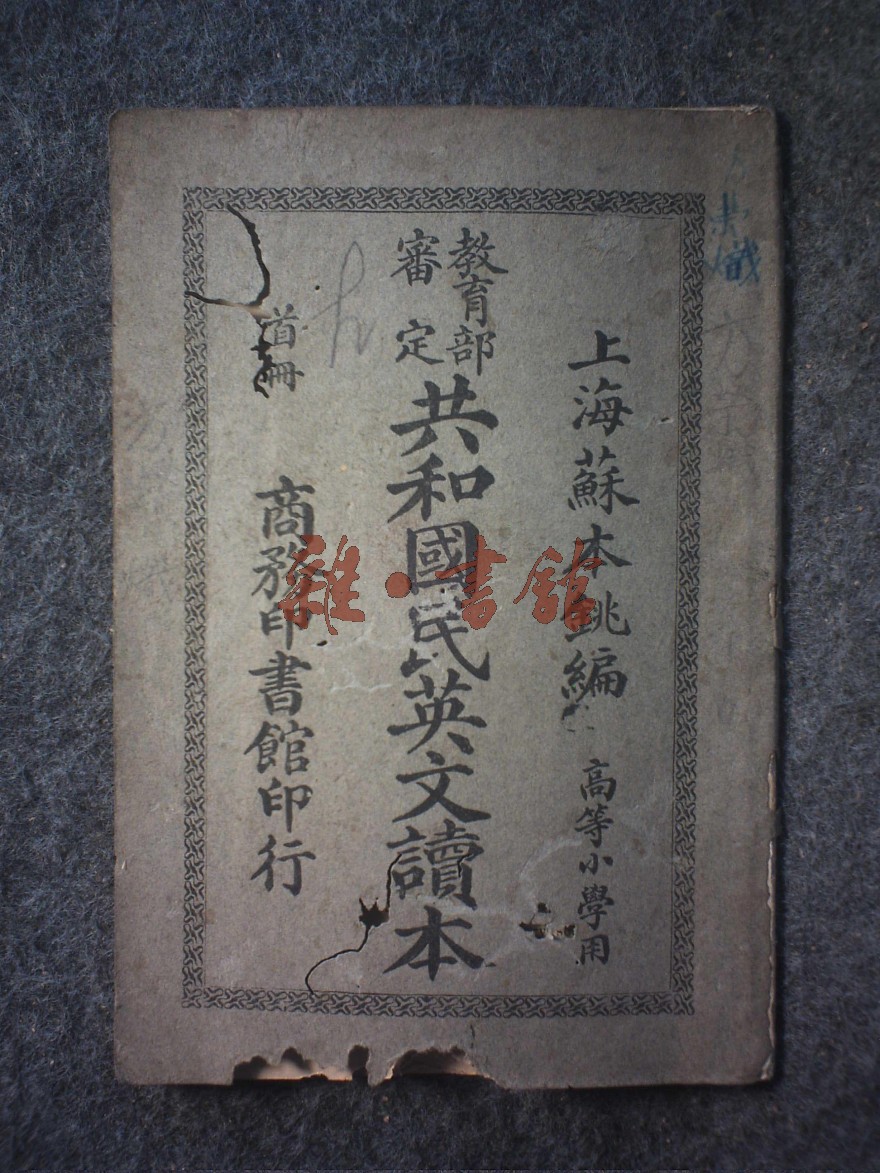 上海蘇本銚編 高等小學用
教育部
審定
共和國民英文讀本
首冊 商務印書館印行
雜·書館